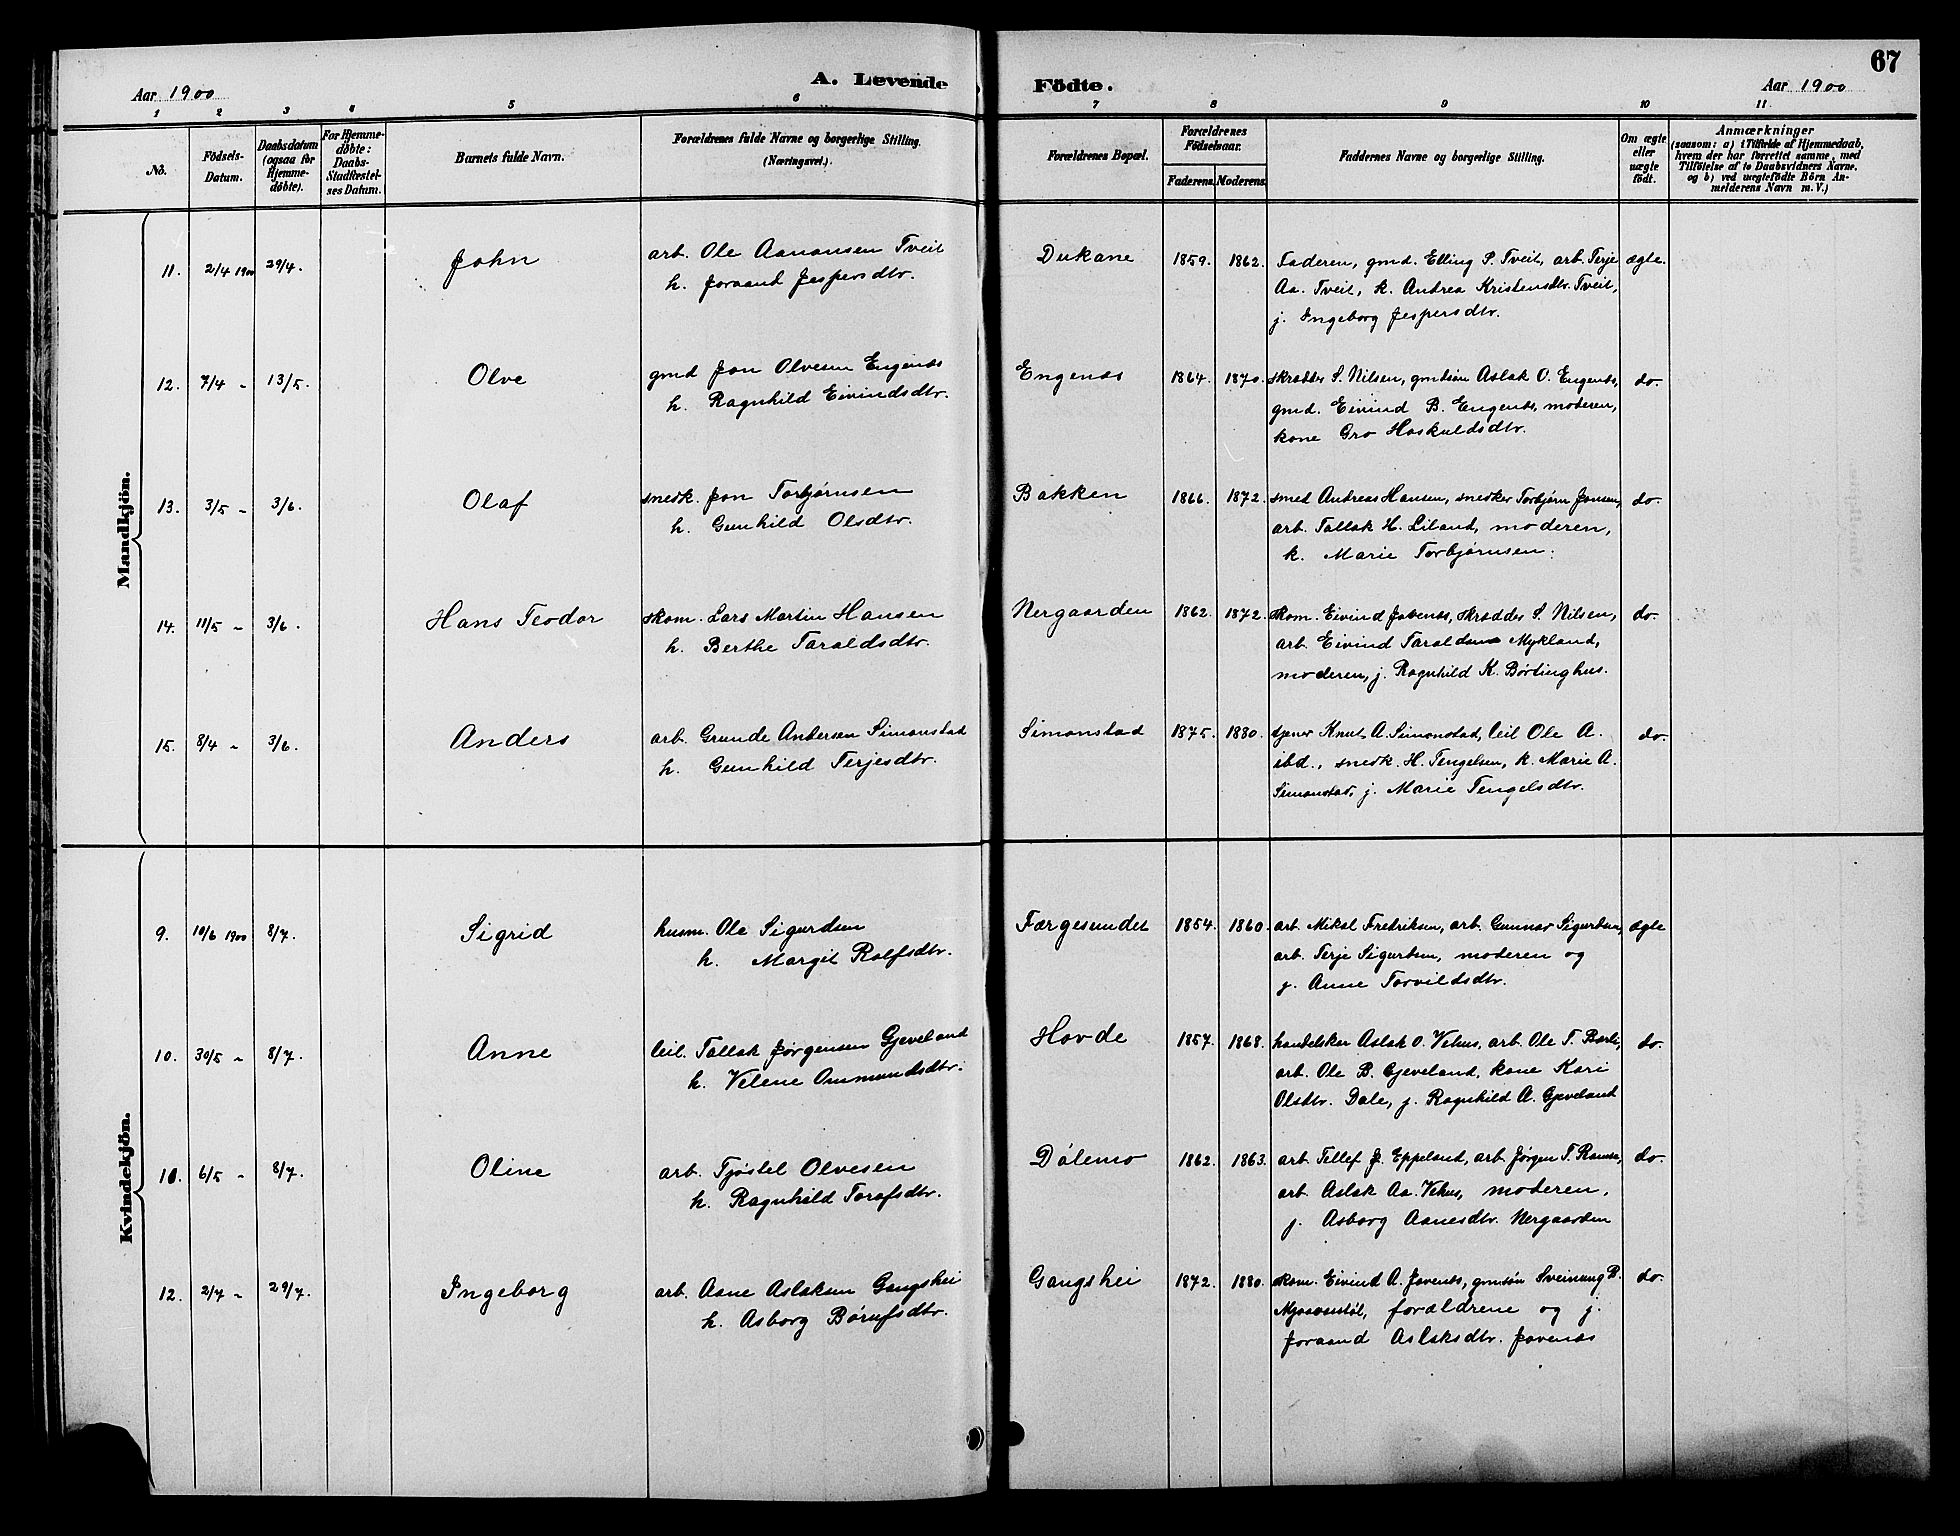 67
Aar 1900
A. Levende Födte.
Aar 1900
1 2 3 4 5 6 7 8 9 10 11
No.
Födsels-Datum.
Daabsdatum (ogsaa for Hjemme-döbte).
For Hjemme-döbte: Daabs-Stadfæstel-ses Datum.
Barnets fulde Navn.
Forældrenes fulde Navne og borgerlige Stilling.
(Næringsvei.)
Forældrenes Bopæl.
Forældrenes Födselsaar.
Faderens. Moderens.
Faddernes Navne og borgerlig Stilling.
Om ægte eller uægte födt.
Anmærkninger
(saasom: a) i Tilfælde af Hjemmedaab,
hvem der har forrettet samme, med
Tilföielse af to Daabsvidners Navne,
og b) ved uægtefödte Börn An-
melderens Navn m. V.)
Mandkjön.
11. 2/4 1900 29/4. John arb. Ole Aanonsen Tveit Dukane 1859. 1862. Faderen, gmd. Elling P. Tveit, arb. Terje ægte.
h. Joraand Jespersdtr. Aa. Tveit, k. Andrea Kristensdtr. Tveit,
j. Ingeborg Jespersdtr.
12. 7/4 - 13/5. Olve gmd Jon Olvesen Engenæs Engenæs 1864. 1870. skrædder S. Nilsen, gmdsøn Aslak O. Engenæs, do.
h. Ragnhild Eivindsdtr. gmd. Eivind B. Engenæs, moderen,
kone Gro Hoskuldsdtr.
13. 3/5 - 3/6. Olaf snedk. Jon Torbjørnsen Bakken 1866. 1872. smed Andreas Hansen, snedker Torbjørn Jonsen, do.
h. Gunhild Olsdtr. arb. Tallak H. Liland, moderen,
k. Marie Torbjørnsen.
14. 11/5 - 3/6. Hans Teodor skom. Lars Martin Hansen Nergaarden 1862. 1872. skom. Eivind Jovenæs, skrædder S. Nilsen, do.
h. Berthe Taraldsdtr. arb. Eivind Taraldsen Mykland,
moderen, j. Ragnhild K. Børtinghus.
15. 8/4 - 3/6. Anders arb. Grunde Andersen Simonstad Simonstad 1875. 1880. tjener Knut A. Simonstad, leil Ole A. do.
h. Gunhild Terjesdtr. ibd., snedk. H. Tengelsen, k. Marie A.
Simonstad, j. Marie Tengelsdtr.
Kvindekjön.
9. 10/6 1900 8/7. Sigrid husm. Ole Sigurdsen Færgesundet 1854. 1860. arb. Mikal Fredriksen, arb. Gunnar Sigurdsen, ægte
h. Margit Rolfsdtr. arb. Terje Sigurdsen, moderen og
j. Anne Torvildsdtr.
10. 30/5 - 8/7. Anne leil. Tallak Jørgensen Gjeveland Hovde 1857. 1868. handelskar Aslak O. Vehus, arb. Ole T. Barli, do.
h. Velene Ommundsdtr. arb. Ole B. Gjeveland, kone Kari
Olsdtr. Dale, j. Ragnhild A. Gjeveland
10. 6/5 - 8/7. Oline arb. Tjøstel Olvesen Dølemo 1862. 1863. arb. Tellef J. Eppeland, arb. Jørgen T. Ramse, do.
h. Ragnhild Torafsdtr. arb. Aslak Aa. Vehus, moderen,
j. Asborg Aanesdtr. Nergaarden
12. 2/7 - 29/7. Ingeborg arb. Aane Aslaksen Gangshei Gangshei 1872. 1880. skom. Eivind A. Jovenæs, gmdsøn Sveinung B. do.
h. Asborg Børufsdtr. Mjaavastøl, forældrene og j.
Joraand Aslaksdtr. Jovenæs